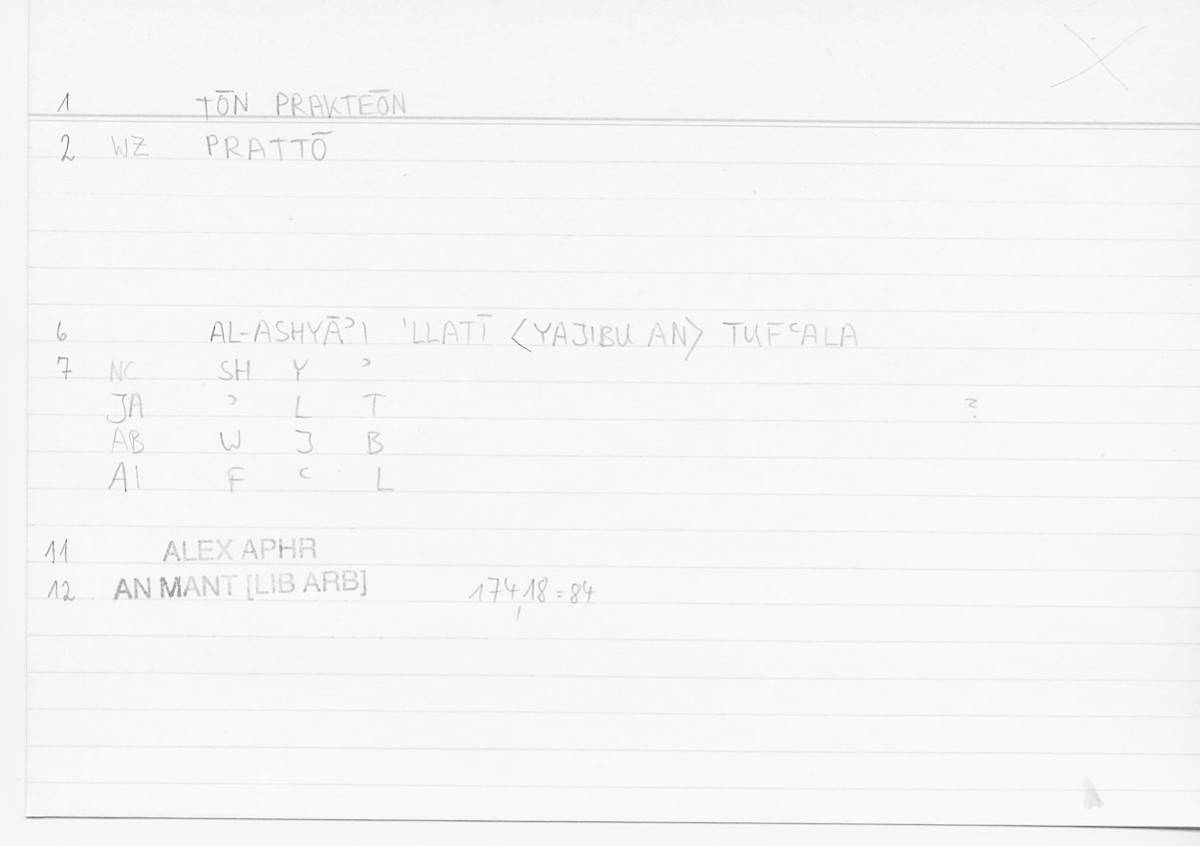 1 TŌN PRAKTEŌN
2 WZ PRATTŌ
6 AL-ASHYĀʾI 'LLATĪ <YAJIBU AN> TUFʿALA
7 NC SH Y ʾ
JA ʾ L T ?
AB W J B
AI F ʿ L
11 ALEX APHR
12 AN MANT [LIB ARB] 174,18=84